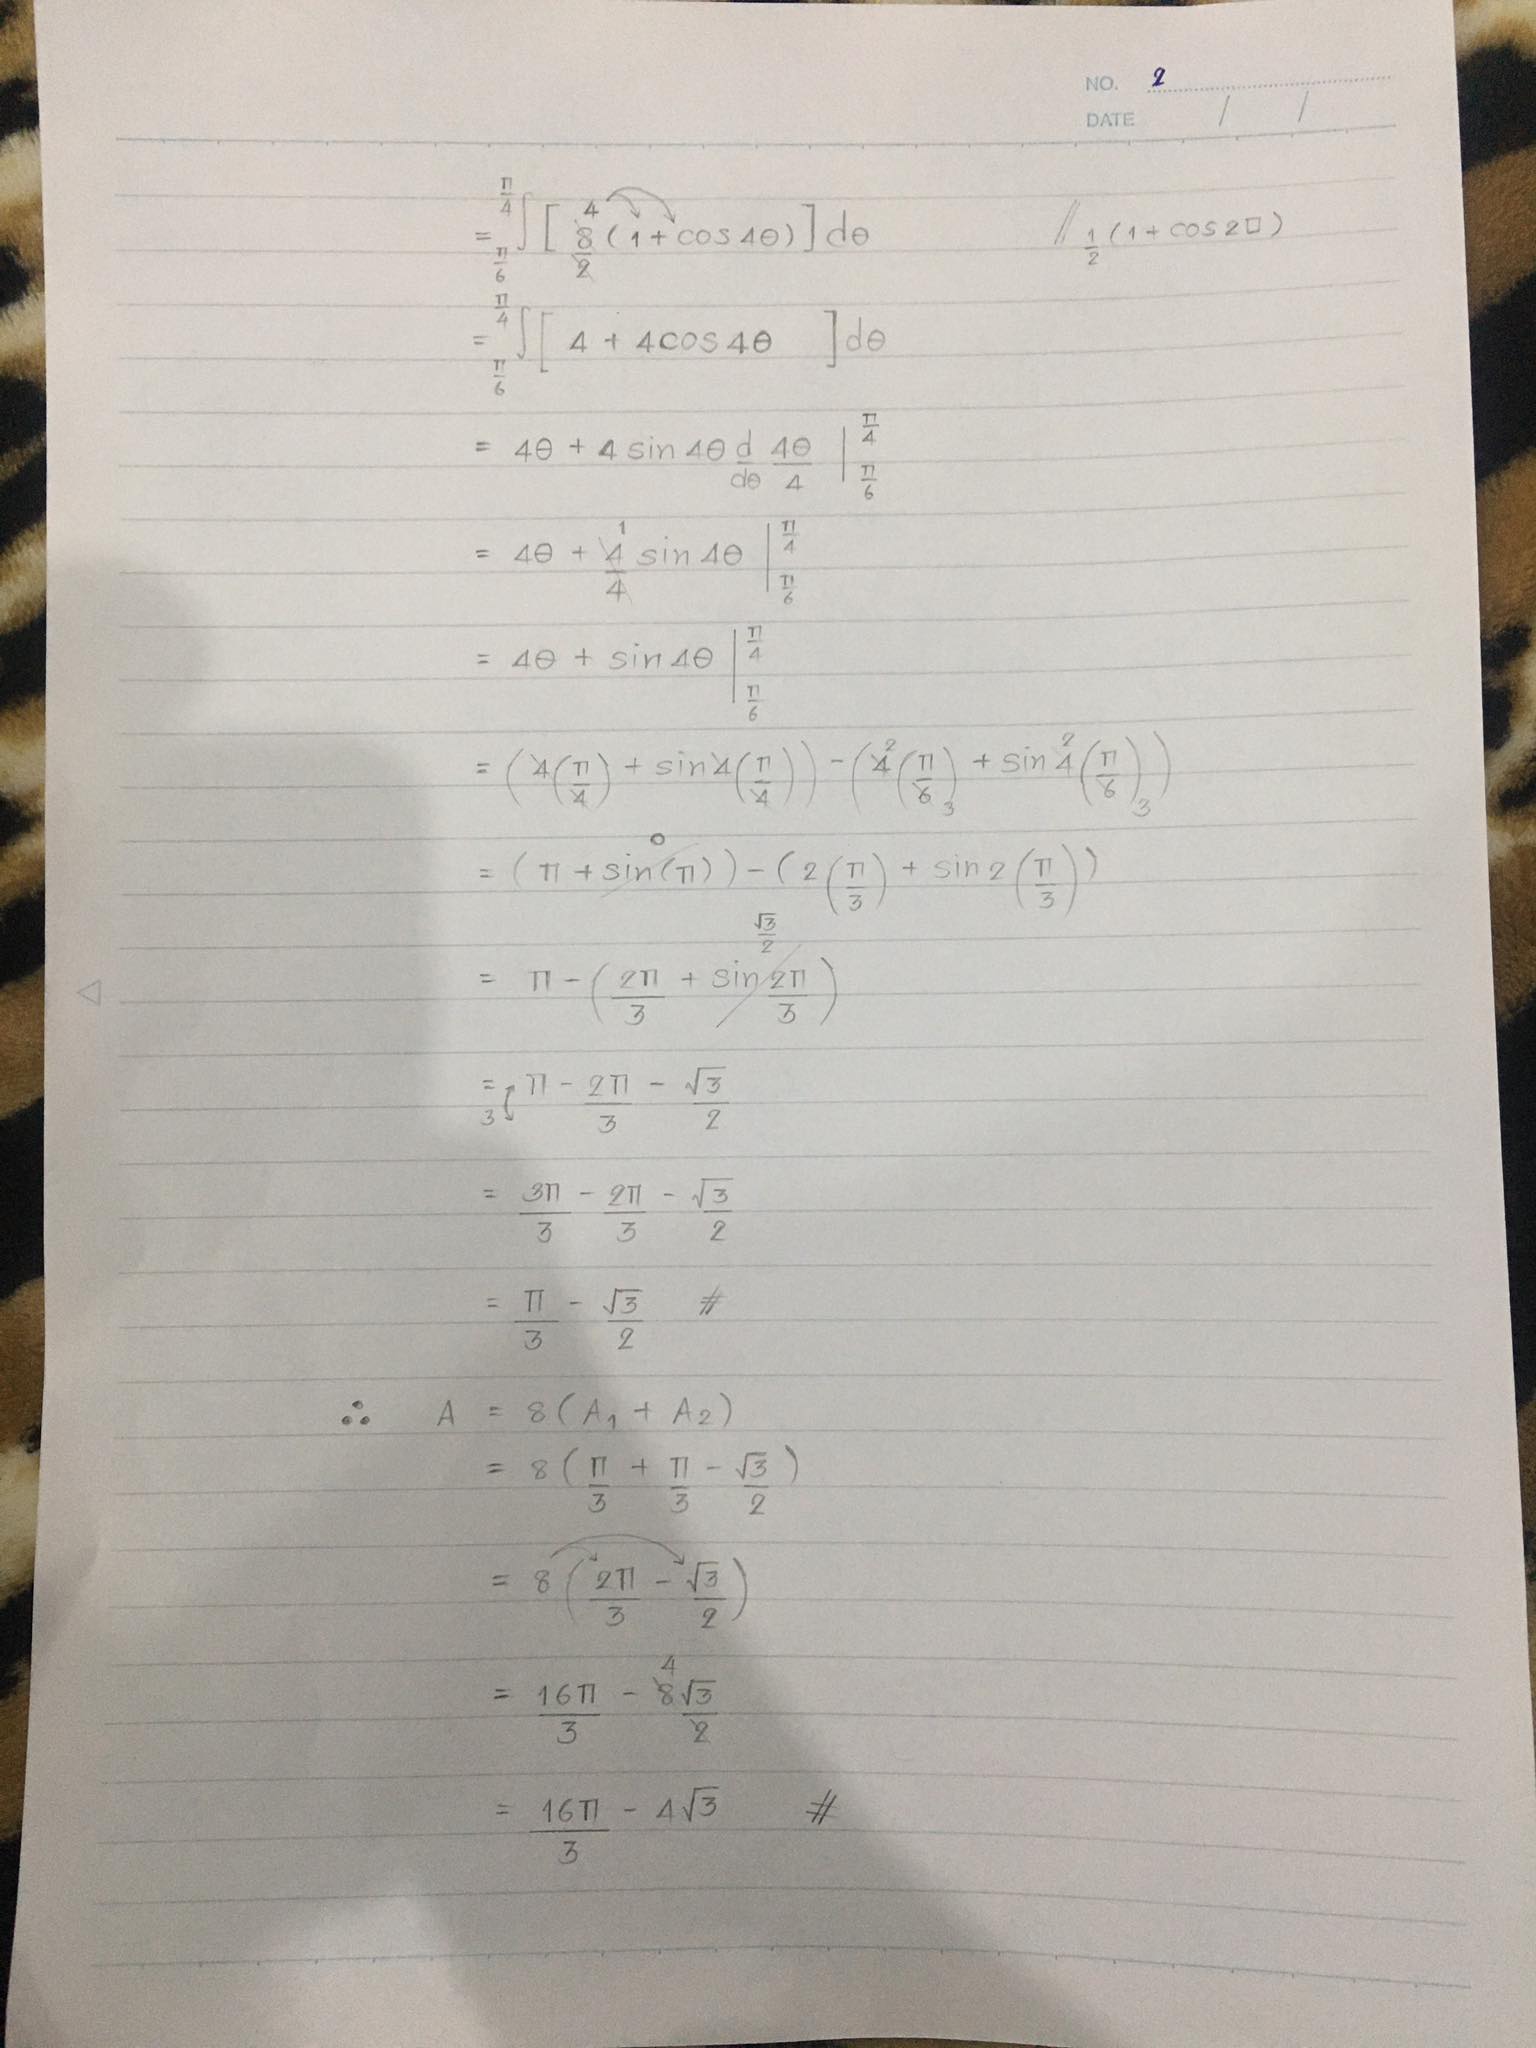 NO. 2
DATE / /
= π/4 π/6 ∫ [ 8/2 4 (1 + cos 4θ) ] dθ // 1/2 (1 + cos 2□)
= π/4 π/6 ∫ [ 4 + 4cos 4θ ] dθ
= 4θ + 4 sin 4θ d/dθ 4θ/4 | π/4 π/6
= 4θ + 4/4 1 sin 4θ | π/4 π/6
= 4θ + sin 4θ | π/4 π/6
= (4(π/4) + sin 4(π/4)) - (4 2 (π/6 3) + sin 4 2 (π/6 3))
= (π + sin(π) 0) - (2(π/3) + sin 2(π/3))
= π - (2π/3 + sin 2π/3 √3/2)
= 3 π - 2π/3 - √3/2
= 3π/3 - 2π/3 - √3/2
= π/3 - √3/2 #
∴ A = 8(A₁ + A₂)
= 8(π/3 + π/3 - √3/2)
= 8(2π/3 - √3/2)
= 16π/3 - 8 4 √3/2
= 16π/3 - 4√3 #